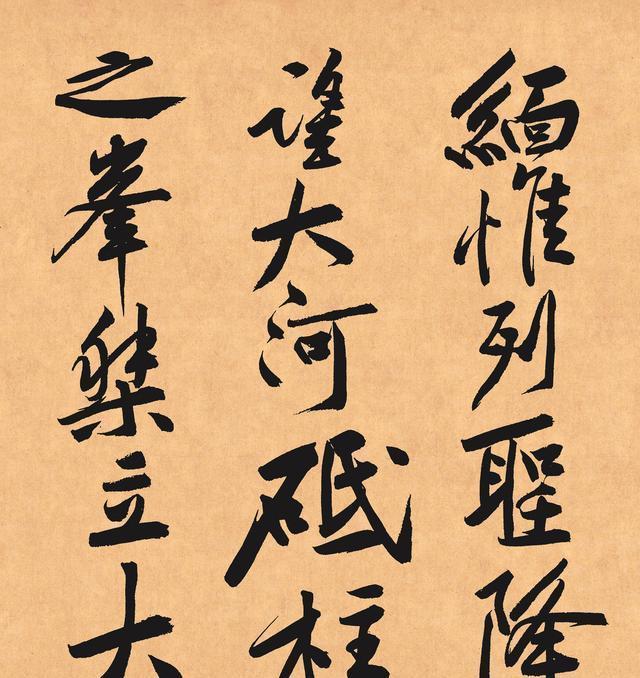 緬惟列聖降
望大河砥柱
之峯桀立大